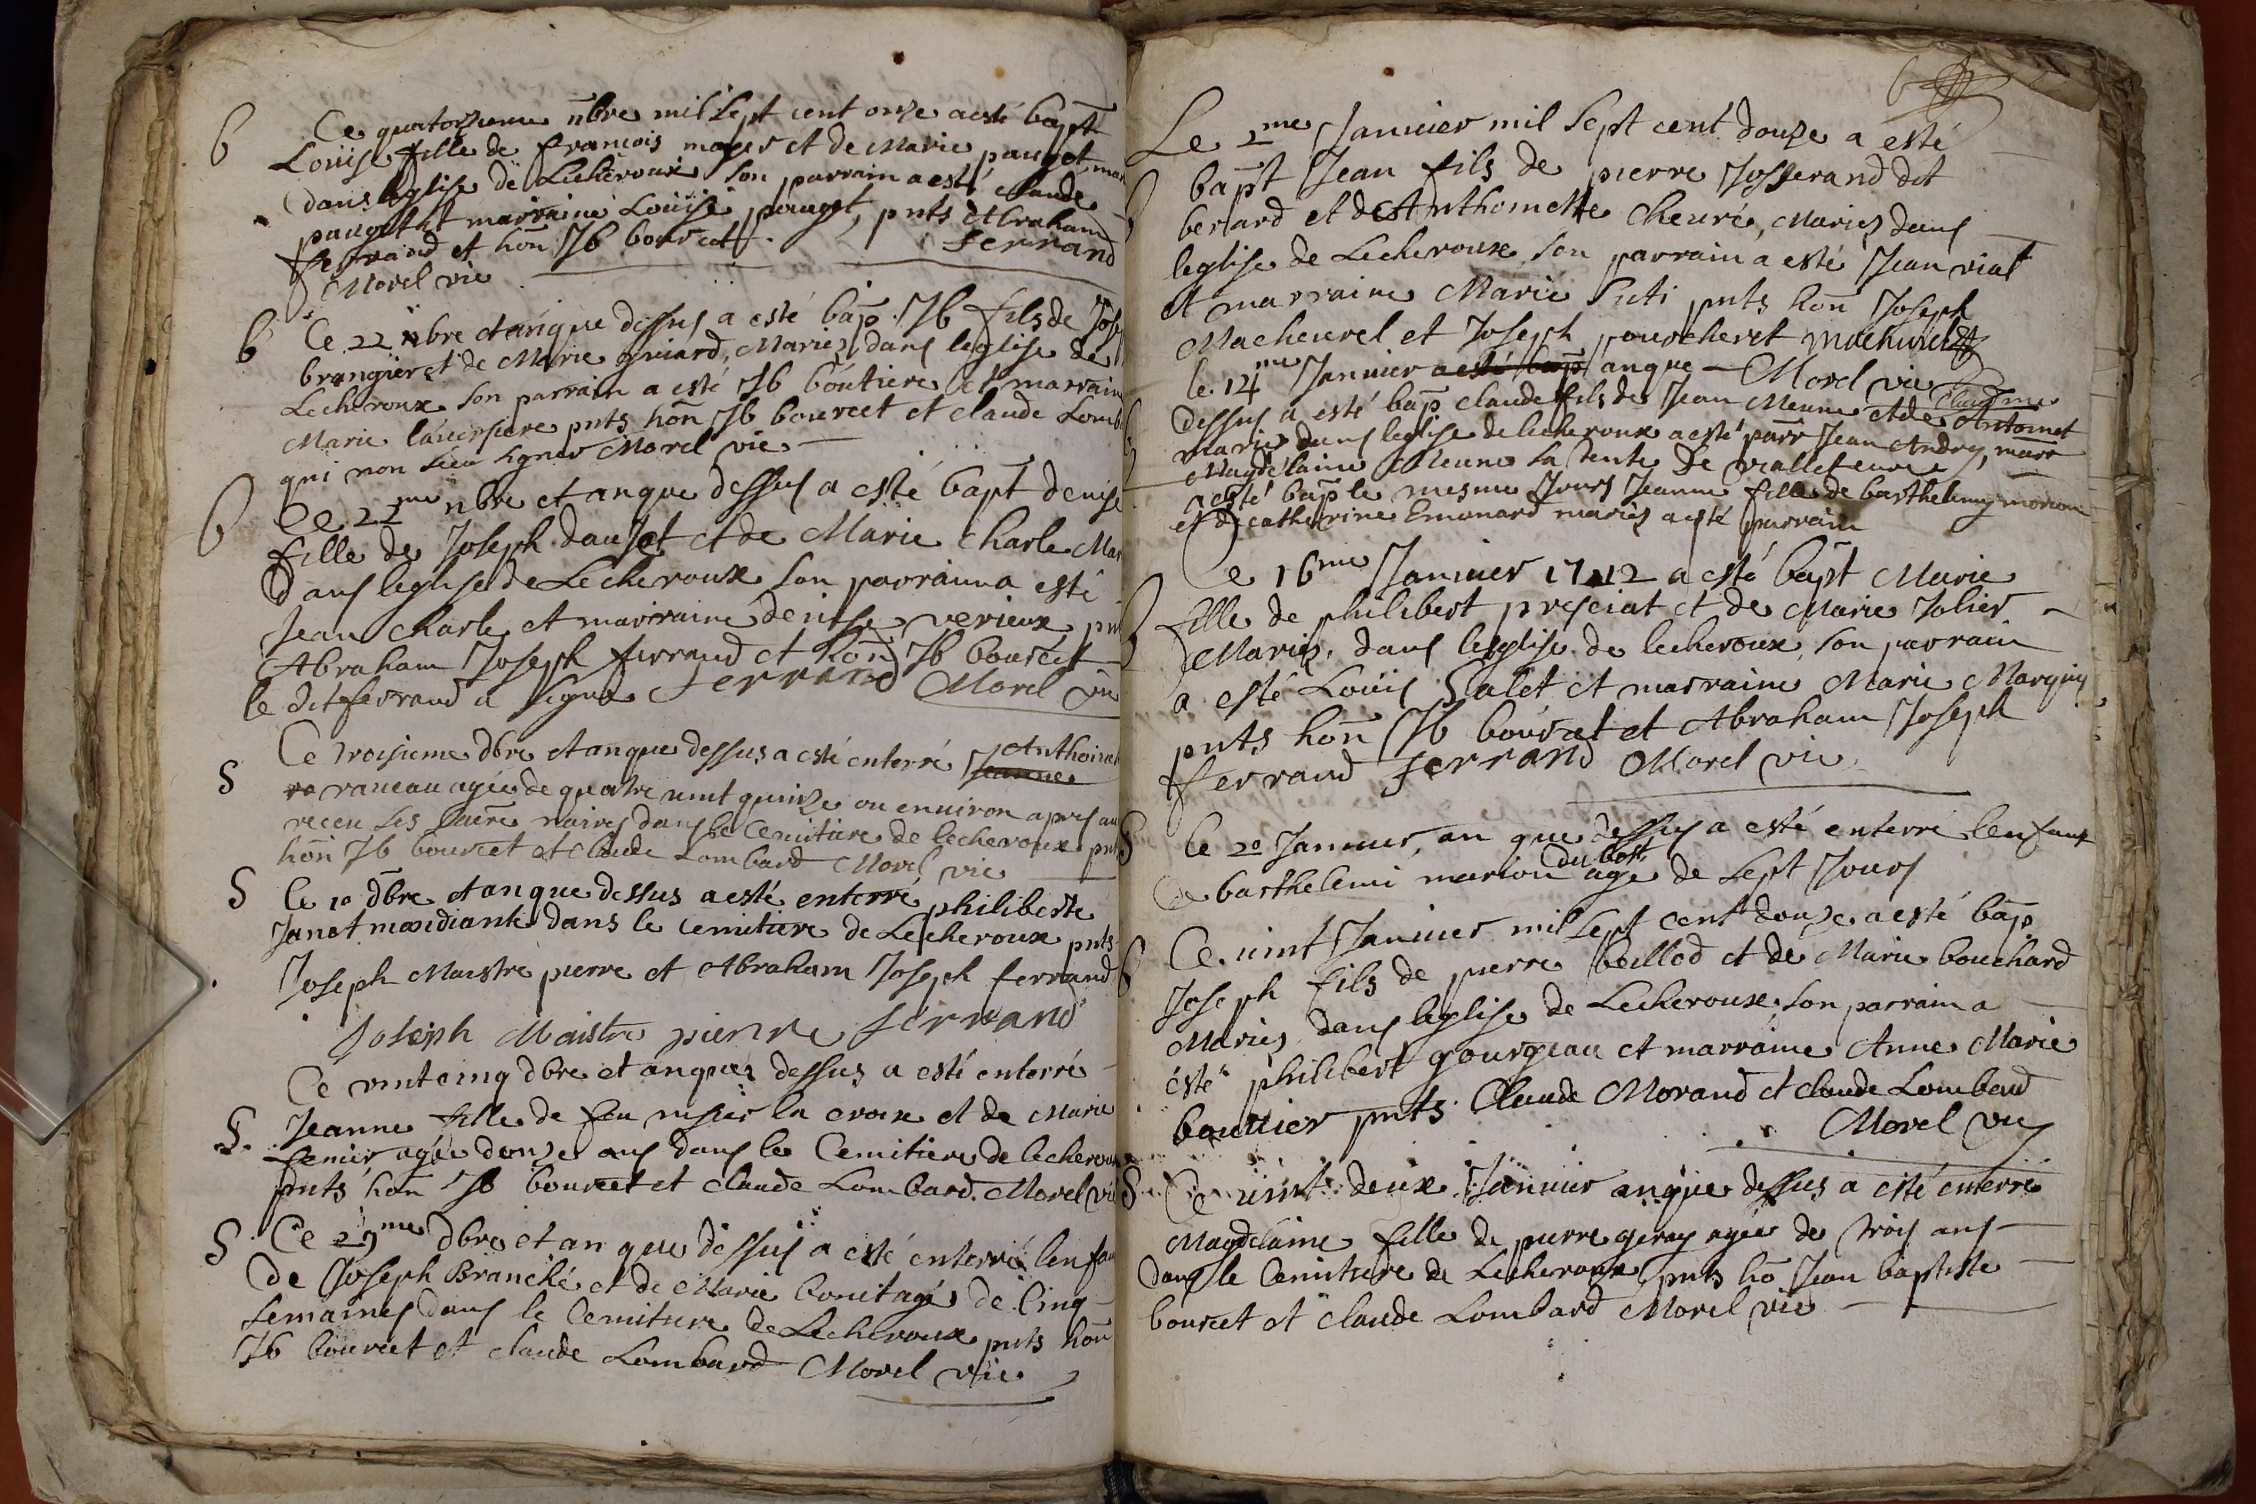 b
Ce quatorzieme nbre mil sept cent onze a esté bapt
Loüise fille de francois mager et de Marie pauget mar
dans leglise de Lescheroux son parrain a esté claude
pauget et marraine Loüise pauget, pnts Abraham
ferrand et hon Jb bourcet ferrand
Morel vic
b
Ce 22 nbre et an que dessus a esté bap. Jb fils de Jose
brangier et de Marie guiard, Mariez dans leglise de
Lecheroux son parrain a esté Jb boutiere et marrain
Marie pnts hon Jb bourcet et claude Lomb
qui non sceu signer Morel vic
b
Ce 22me nbre et an que dessus a esté bapt denise
fille de Joseph dauset et de Marie Charle Mar
dans leglise de Lecheroux son parrain a esté
Jean Charle et marraine denise verieux pnt
Abraham Joseph ferrand et hon Jb bourcet
le dit ferrand a signé ferrand Morel vic
S
Ce troisieme dbre et an que dessus a esté enterré Jeanne Anthoinet
raneau agée de quatre vint quinze ou environ apres au
receu les sacre naires dans le Cemitiere de lecheroux pnt
hon Jb bourcet et Claude Lombard Morel vic
S
le 10 dbre et an que dessus a esté enterré philiberte
Janot mandiante dans le cemitiere de Lecheroux pnts
Joseph Maistre pierre et Abraham Joseph ferrand
Joseph Maistre pierre ferrand
Ce vint cinq dbre et an que dessus a esté enterré
S.
Jeanne fille de feu la croix et de Marie
agée douze ans dans le Cemitiere de lecheroux
pnts hon Jb bourcet et claude Lombard. Morel vi
S
Ce 29me dbre et an que dessus a esté enterré lenfan
de Joseph Branché et de Marie bonitagé de Cinq
semaines dans le Cemitiere de Lecheroux pnts hon
Jb bourcet et claude Lombard Morel vic
Le 2me Janvier mil sept cent douze a esté
b
bapt Jean fils de pierre Josserand dit
berard et de Anthoinette Cheuré, Mariez dans
leglise de Lecheroux son parrain a esté Jean vial
et marraine Marie pnts hon Joseph
Macheurel et Joseph pourcheret macheurel
le 14me Janvier a esté bap an que Morel vic
dessus a esté bap claude fils de Jean Meune et de Antoinet
mariez dans leglise de lecheroux a esté parr Jean Andrey, marr
Magdelaine Meune sa tente de
a esté bap le mesme Jour Jeanne fille de barthelemy morion
et de catherine Emonard mariez a esté parrain
Ce 16me Janvier 1712 a esté bapt Marie
b
fille de philibert presciat et de Marie Jolier
Mariez, dans leglise de lecheroux, son parrain
a esté Loüis Salet et marraine Marie Marguin
pnts hon Jb bourcet et Abraham Joseph
ferrand ferrand Morel vic
S
le 20 Janvier, an que dessus a esté enterré lenfant
de barthelemi marion du bost age de sept Jours
Ce vint Janvier mil sept cent douze a esté bap
b
Joseph fils de pierre beillod et de Marie bouchard
Mariez dans leglise de Lecheroux, son parrain a
esté philibert gourgeau et marraine Anne Marie
bouuier pnts Claude Morand et claude Lombard
Morel vic
S
Ce vint deux Janvier an que dessus a esté enterré
Magdelaine fille de pierre geray agée de trois ans
dans le Cemitiere de Lecheroux, pnts ho Jean baptiste
bourcet et claude Lombard Morel vic